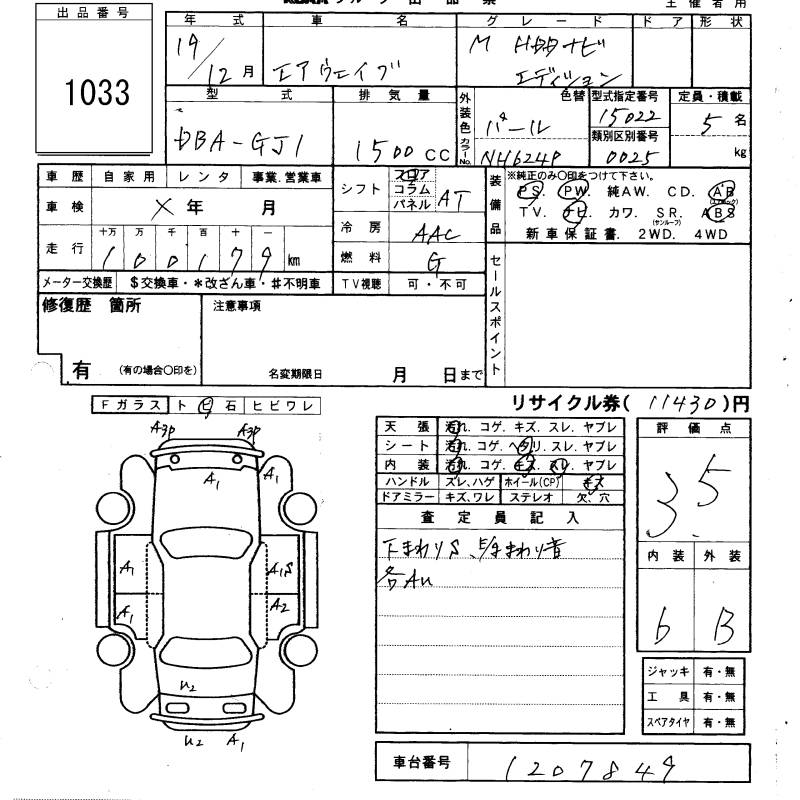 出品番号
1033
主催者用
年式 車名 グレード ドア 形状
19/12月 エアウェイブ M HDDナビ エディション
型式 排気量 外装色 カラーNo. 色替 型式指定番号 定員・積載
DBA-GJ1 1500CC パール 15022 5名
類別区別番号
NH624P 0025 kg
車歴 自家用 レンタ 事業.営業車
車検 × 年 月
走行 十万 万 千 百 十 一
100179km
メーター交換歴 $交換車・*改ざん車・#不明車
シフト フロア コラム パネル AT
冷房 AAC
燃料 G
TV視聴 可・不可
装備品 ※純正のみ○印をつけて下さい。
PS. PW. 純AW. CD. AB
TV. ナビ. カワ. SR.(サンルーフ) ABS
新車保証書. 2WD. 4WD
修復歴 箇所
有 (有の場合○印を)
注意事項
名変期限日 月 日まで
セールスポイント
リサイクル券(11430)円
Fガラス トビ石 ヒビワレ
天張 汚れ. コゲ. キズ. スレ. ヤブレ
シート 汚れ. コゲ. ヘタリ. スレ. ヤブレ
内装 汚れ. コゲ. キズ. スレ. ヤブレ
ハンドル スレ、ハゲ ホイール(CP) キズ
ドアミラー キズ、ワレ ステレオ 欠、穴
査定員記入
下まわりS、
各AU
評価点
3.5
内装 外装
6 B
ジャッキ 有・無
工具 有・無
スペアタイヤ 有・無
A3P A3P
A1 A1
A1 A1S
A1 A2
U2
U2 A1
車台番号 1207849